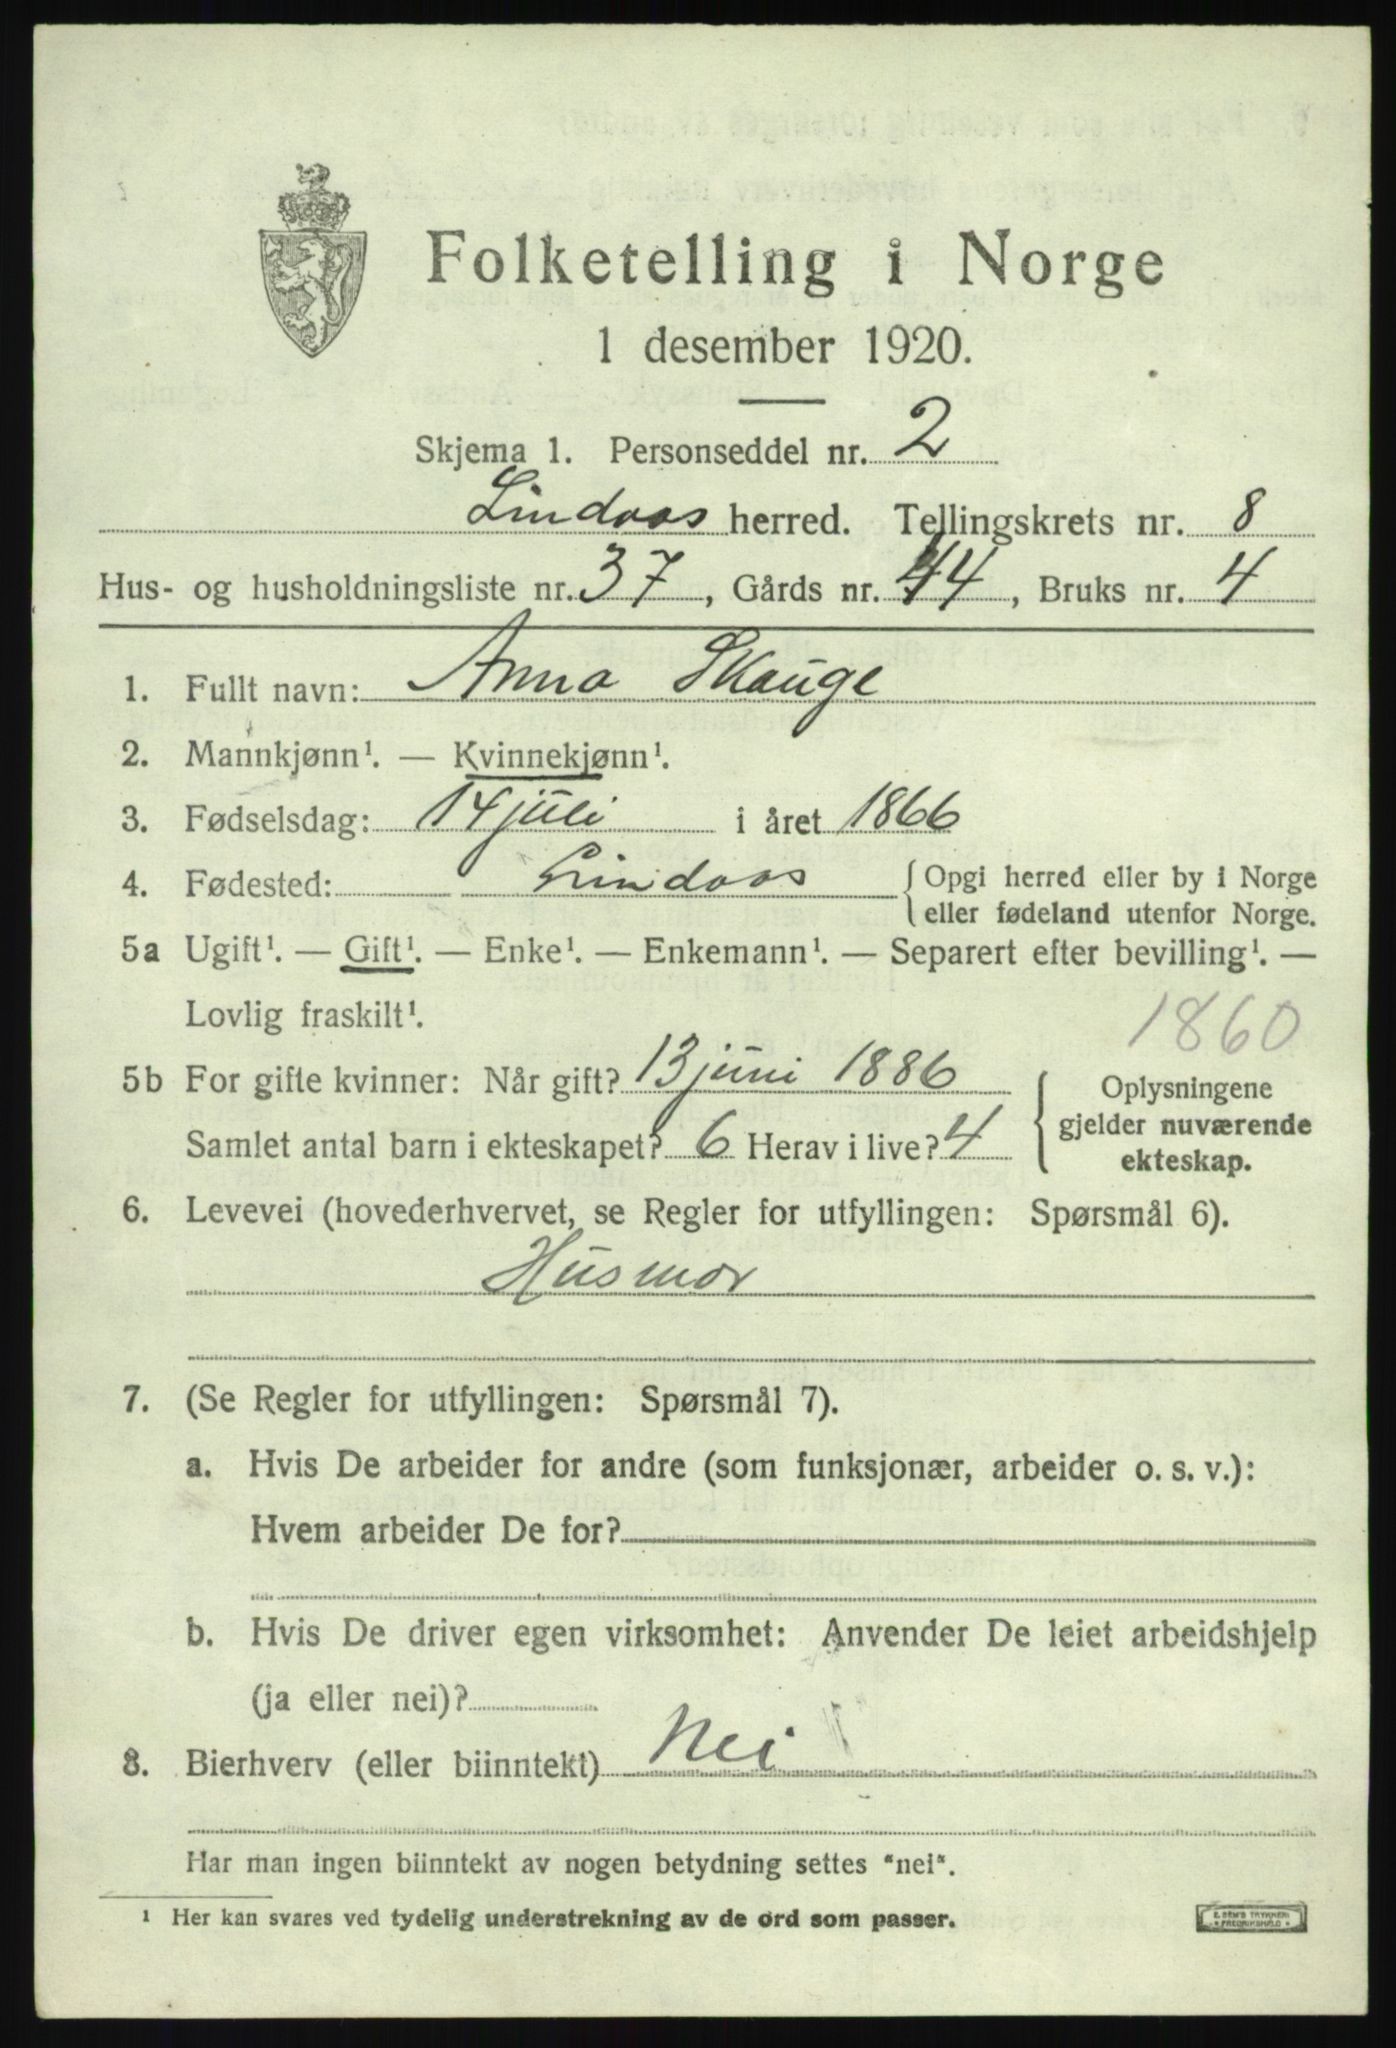 Folketelling i Norge
1 desember 1920.
Skjema 1. Personseddel nr. 2
Lindaas herred. Tellingskrets nr. 8
Hus- og husholdningsliste nr. 37, Gårds nr. 44, Bruks nr. 4
1. Fullt navn: Anna Skauge
2. Mannkjønn¹. — Kvinnekjønn¹.
3. Fødselsdag: 14 juli i året 1866
4. Fødested: Lindaas { Opgi herred eller by i Norge
eller fødeland utenfor Norge.
5a Ugift¹. — Gift¹. — Enke¹. — Enkemann¹. — Separert efter bevilling¹. —
Lovlig fraskilt¹.
1860
5b For gifte kvinner: Når gift? 13 juni 1886 { Oplysningene
gjelder nuværende
Samlet antal barn i ekteskapet? 6 Herav i live? 4
ekteskap.
6. Levevei (hovederhvervet, se Regler for utfyllingen: Spørsmål 6).
Husmor
7. (Se Regler for utfyllingen: Spørsmål 7).
a. Hvis De arbeider for andre (som funksjonær, arbeider o. s. v.):
Hvem arbeider De for?
b. Hvis De driver egen virksomhet: Anvender De leiet arbeidshjelp
(ja eller nei)?
8. Bierhverv (eller biinntekt) Nei
Har man ingen biinntekt av nogen betydning settes "nei".
¹ Her kan svares ved tydelig understrekning av de ord som passer.
E. SEM'S TRYKKERI
FREDRIKSHALD